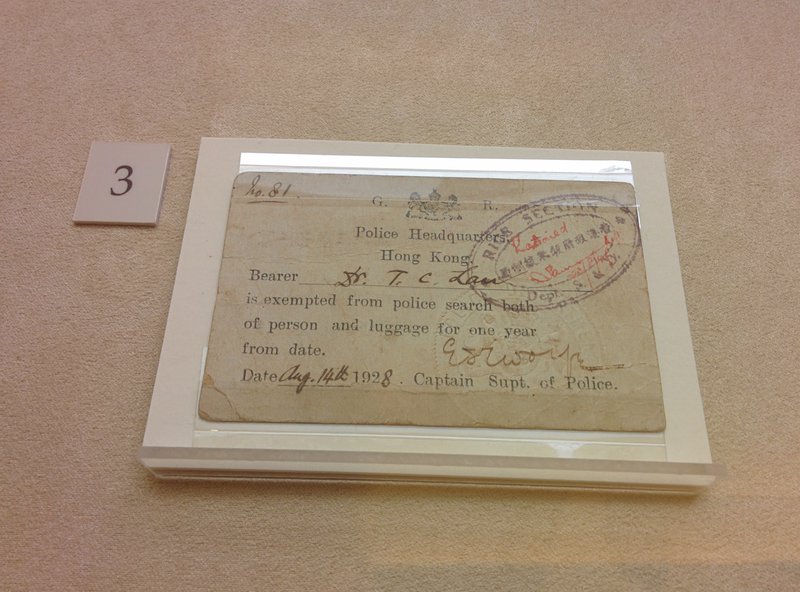 3
No. 81.
G. R.
Police Headquarters,
Hong Kong.
Bearer Dr. T. C. Lau
is exempted from police search both
of person and luggage for one year
from date.
Date Aug. 14th 1928. Captain Supt. of Police.
SECTION
Rationed
Dept.